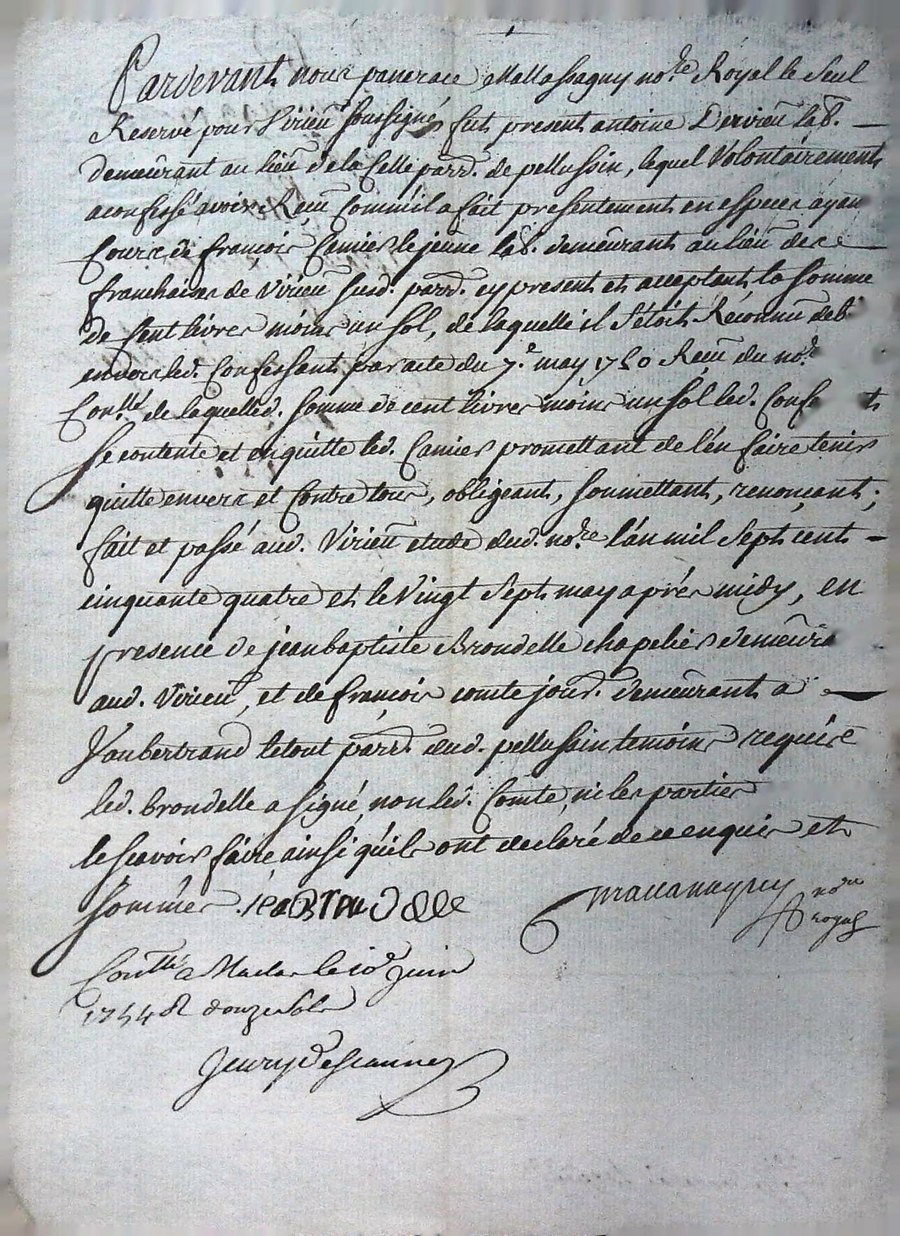 Pardevant nous pancrace Mallassagny no.re Royal le Seul
Reservé pour Virieu Soussigné, fut present antoine Dervieu lab.
demeurant au lieu de la Celle parr. de pellussin, lequel Volontairement
a confessé avoir Reçu Comme il a fait presentement en especes ayan
Cours, de françois Camier le jeune lab. demeurant au lieu de
franchises de Virieu susd. parr. cy present et acceptant la somme
de Cent livres moins un sol, de laquelle il s'etoit Reconnu deb
envers led. Confessant par acte du 7.e may 1750 Receu du no.re
Con.llé de laquelle d. somme de cent livres moins un sol led. Confe ts
se contente et en quitte led. Camier promettant de l'en faire tenir
quitte envers et Contre tous, obligeant, soumettant, renonçant;
fait et passé aud. Virieu etude dud. no.re l'an mil Sept cent
cinquante quatre et le Vingt Sept may aprés midy, en
presence de jean baptiste Brondelle chapelier demeura
aud. Virieu, et de françois comte jour. demeurant a
Vaubertrand le tout parr. dud. pellussin temoins requis
led. brondelle a signé, non led. Comte, ni les parties
le scavoir faire ainsi qu'ils ont declaré de ce enquis et
sommés.
no.re
royal
Con.llé a Maclas le 10.e juin
1754 R douze sols